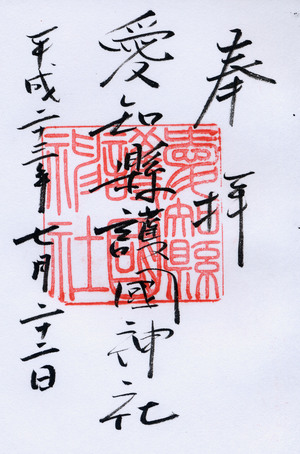 奉拝
愛知縣護國神社
平成二十三年七月二十二日
愛知縣護國神社